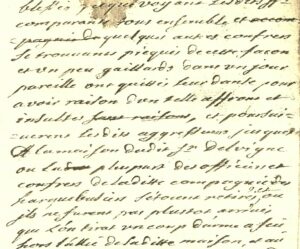 blessés ce que voyant lesdits
comparants tous ensemble et
quelques autres confreres
se trouvans picqués de cette façon
et un peu gaillards dans un jour
pareille ont quitté leur danse pour
avoir raison d'un telle affrons et
insultes et poursui-
uerent lesdits aggresseurs jusques
A la maison dudit Sr Delvigne
ou la plus part des officiers et
confrers de la ditte compagnie des
harquebusiers s'etoient retirés, et ou
ils ne furent pas plustot arrivés
que l'on tirat un coup darme a feu
hors de la ditte maison, et au